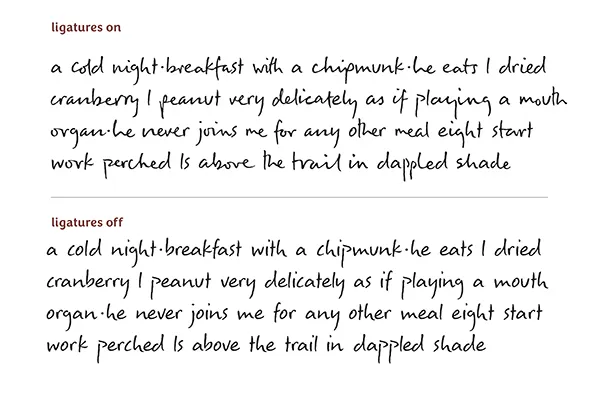 ligatures on
a cold night·breakfast with a chipmunk·he eats 1 dried
cranberry 1 peanut very delicately as if playing a mouth
organ·he never joins me for any other meal eight start
work perched 1s above the trail in dappled shade
ligatures off
a cold night·breakfast with a chipmunk·he eats 1 dried
cranberry 1 peanut very delicately as if playing a mouth
organ·he never joins me for any other meal eight start
work perched 1s above the trail in dappled shade